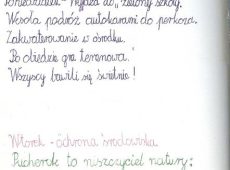 Poniedziałek - wyjazd do „zielonej szkoły.
Wesoła podróż autokarami do perkoza.
Zakwaterowanie w ośrodku.
Po obiedzie gra terenowa.
Wszyscy bawili się świetnie!
Wtorek - ochrona środowiska
Pieherok to niszczyciel natury: